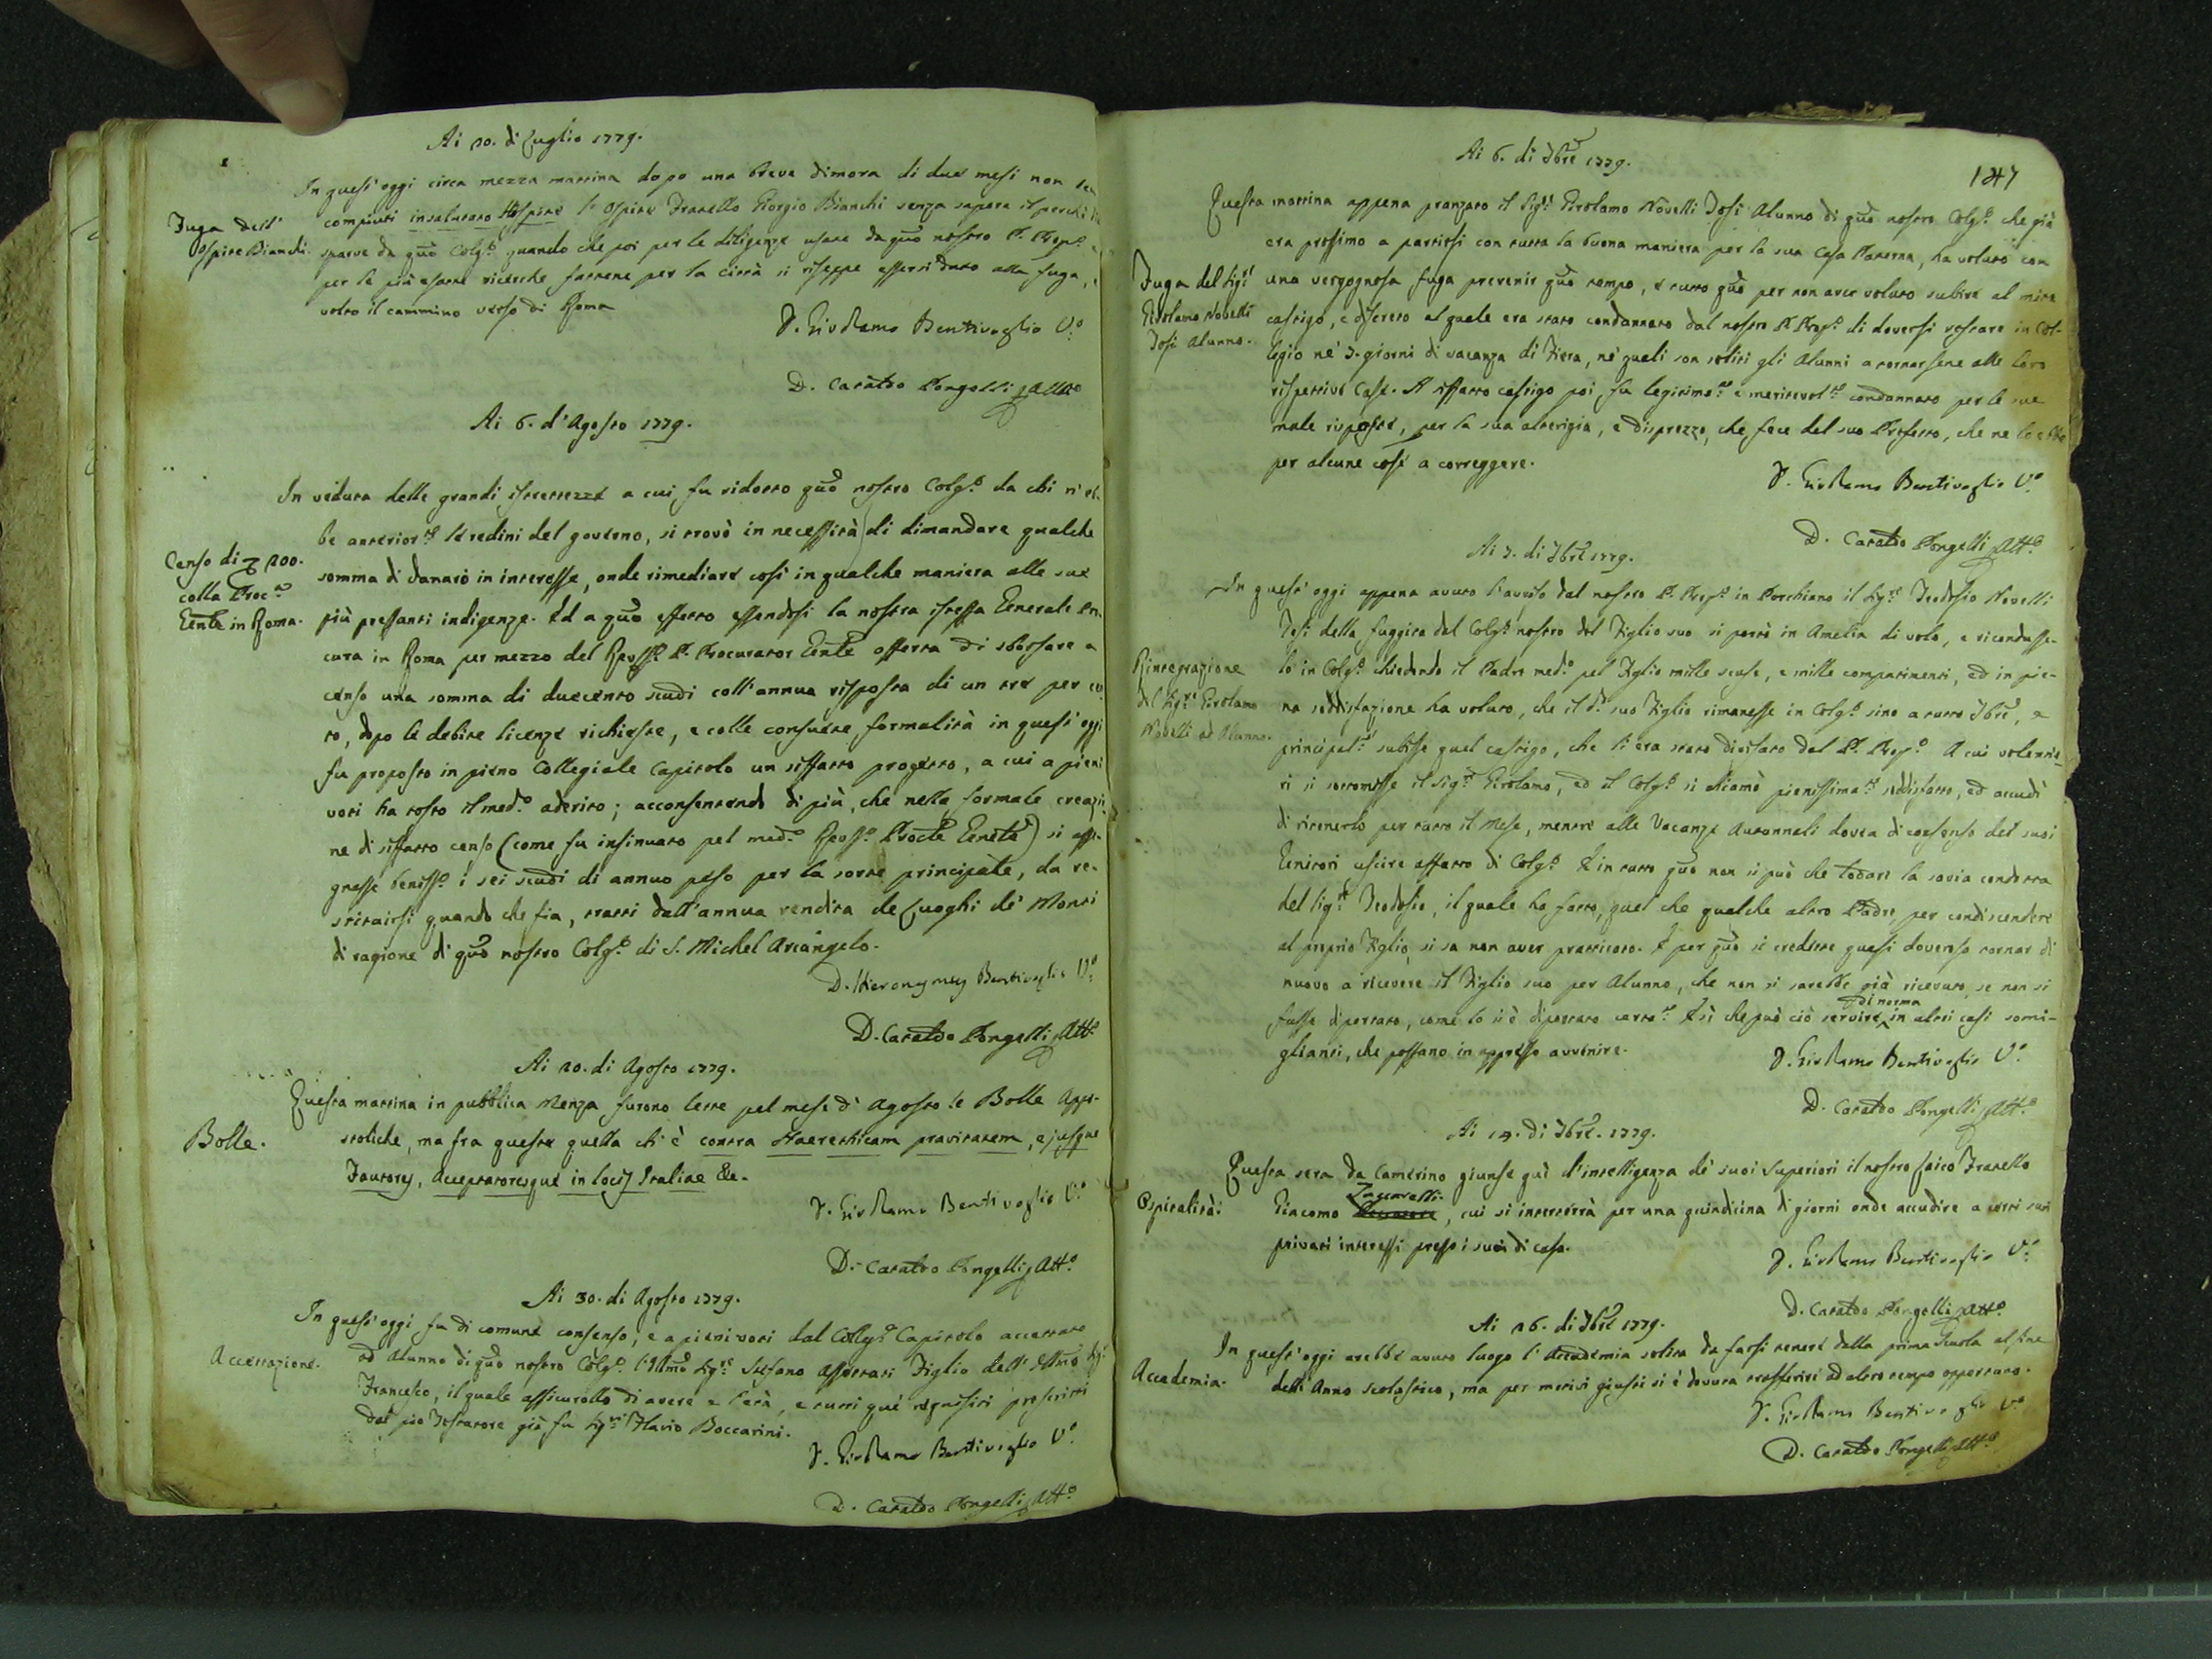 Ai 20. di Luglio 1779.
In quest'oggi circa mezza mattina dopo una breve dimora di due mesi non
Fuga dell'
Ospite Bianchi.
compiuti insalutato Hospite l'Ospite Fratello Giorgio Bianchi senza sapere il perchè
sparve da quõ Colg.º quando che poi per le diligenze usate da quõ nostro P. Prep.º
per le più esatte ricerche fattene per la città si riseppe essersi dato alla fuga,
volto il cammino verso di Roma
D. Girolamo Bentivoglio V.º
D. Cataldo Pongelli Att.º
Ai 6. d'Agosto 1779.
In veduta delle grandi istrettezze a cui fu ridotto quõ nostro Colg.º da chi n'eb-
be anterior.te le redini del governo, si trovò in necessità di dimandare qualche
Censo di 200.
colla Proc.a
Gente in Roma.
somma di danaro in interesse, onde rimediare così in qualche maniera alle sue
più pressanti indigenze. Ed a quõ effetto essendosi la nostra istessa Generale Pro-
cura in Roma per mezzo del P. Procurator Gente offerta di sborsare a
censo una somma di duecento scudi coll'annua risposta di un tre per cen-
to, dopo le debite licenze richieste, e colle consuete formalità in quest'oggi
fu proposto in pieno Collegiale Capitolo un siffatto progetto, a cui a pieni
voti ha tosto il med.º aderito; acconsentendo di più, che nella formale creazio-
ne di siffatto censo (come fu insinuato pel med.º Procte Gente) si asse-
gnasse beniss.º i sei scudi di annuo peso per la sorte principale, da re-
stituirsi quando che sia, tratti dall'annua rendita de Luoghi de' Monti
di ragione di quõ nostro Colg.º di S. Michel Arcangelo.
D. Hieronymus Bentivoglio V.º
D. Cataldo Pongelli Att.º
Ai 20. di Agosto 1779.
Questa mattina in pubblica Menza furono lette pel mese d'Agosto le Bolle Apos-
Bolle.
stoliche, ma fra queste quella ch'è contra Haereticam pravitatem, ejusque
Fautores, Acceptatoresque in locis Italiae &c.
D. Girolamo Bentivoglio V.º
D. Cataldo Pongelli Att.º
Ai 30. di Agosto 1779.
In quest'oggi fu di comune consenso, e a pieni voti dal Collg.º Capitolo accettato
Accettazione.
ad Alunno di quõ nostro Colg.º l'Illmo Sig.re Stefano Assettati Figlio dell'Illmo Sig.
Francesco, il quale assicurollo di avere e l'età, e tutti que' requisiti prescritti
dal pio Testatore già fu Sig.r Flavio Boccarini.
D. Girolamo Bentivoglio V.º
D. Cataldo Pongelli Att.º
147
Ai 6. di 7bre 1779.
Questa mattina appena pranzato il Sig.r Girolamo Novelli Josi Alunno di quõ nostro Colg.º che già
era prossimo a partirsi con tutta la buona maniera per la sua Casa Paterna, ha voluto con
Fuga del Sig.r
Girolamo Novelli
Josi Alunno.
una vergognosa fuga prevenir quõ tempo, e tutto quõ per non aver voluto subire al mite
castigo, e discreto al quale era stato condannato dal nostro P. Prep.º di doversi restare in Col-
legio ne' 3. giorni di vacanza di Fiera, ne' quali son soliti gli Alunni a tornarsene alle loro
rispettive Case. A siffatto castigo poi fu legitimo.te e meritevol.te condannato per le sue
male risposte, per la sua alterigia, e disprezzo, che fece del suo Prefetto, che ne lo ebbe
per alcune cose a correggere.
D. Girolamo Bentivoglio V.º
D. Cataldo Pongelli Att.º
Ai 7. di 7bre 1779.
In quest'oggi appena avuto l'avviso dal nostro P. Prep.º in Porchiano il Sig.re Teodosio Novelli
Josi della fuggita dal Colg.º nostro del Figlio suo si portò in Amelia di volo, e ricondusse-
Rintegrazione
del Sig.re Girolamo
Novelli ad Alunno.
lo in Colg.º chiedendo il Padre med.º pel Figlio mille scuse, e mille compatimenti, ed in pie-
na soddisfazione ha voluto, che il d.º suo Figlio rimanesse in Colg.º sino a tutto 7bre, e
principal.te subisse quel castigo, che li era stato divisato dal P. Prep.º A cui volentie-
ri si sottomesse il Sig.re Girolamo, ed il Colg.º si chiamò pienissima.te soddisfatto, ed accudì
di ritenerlo per tutto il Mese, mentre alle Vacanze Autunnali dovea di consenso dei suoi
Genitori uscire affatto di Colg.º E in tutto quõ non si può che lodare la savia condotta
del Sig.re Teodosio, il quale ha fatto, quel che qualche altro Padre, per condiscendere
al proprio Figlio, si sa non aver pratticato. E per quõ si credette quasi doveroso tornar di
nuovo a ricevere il Figlio suo per Alunno, che non si sarebbe già ricevuto se non si
fusse diportato, come lo si è diportato certo.te E sì che può ciò servire di norma in altri casi somi-
glianti, che possano in appresso avvenire.
D. Girolamo Bentivoglio V.º
D. Cataldo Pongelli Att.º
Ai 14. di 7bre. 1779.
Questa sera da Camerino giunse quì d'intelligenza de' suoi Superiori il nostro Laico Fratello
Ospitalità:
Giacomo Zuccarelli, cui si intertérrà per una quindicina di giorni onde accudire a certi suoi
privati interessi presso i suoi di casa.
D. Girolamo Bentivoglio V.º
D. Cataldo Pongelli Att.º
Ai 26. di 7bre 1779.
In quest'oggi avrebbe avuto luogo l'Accademia solita da farsi tenere dalla prima Scuola al fine
Accademia.
dell'Anno scolastico, ma per motivi giusti si è dovuta trasferire ad altro tempo opportuno.
D. Girolamo Bentivoglio V.º
D. Cataldo Pongelli Att.º